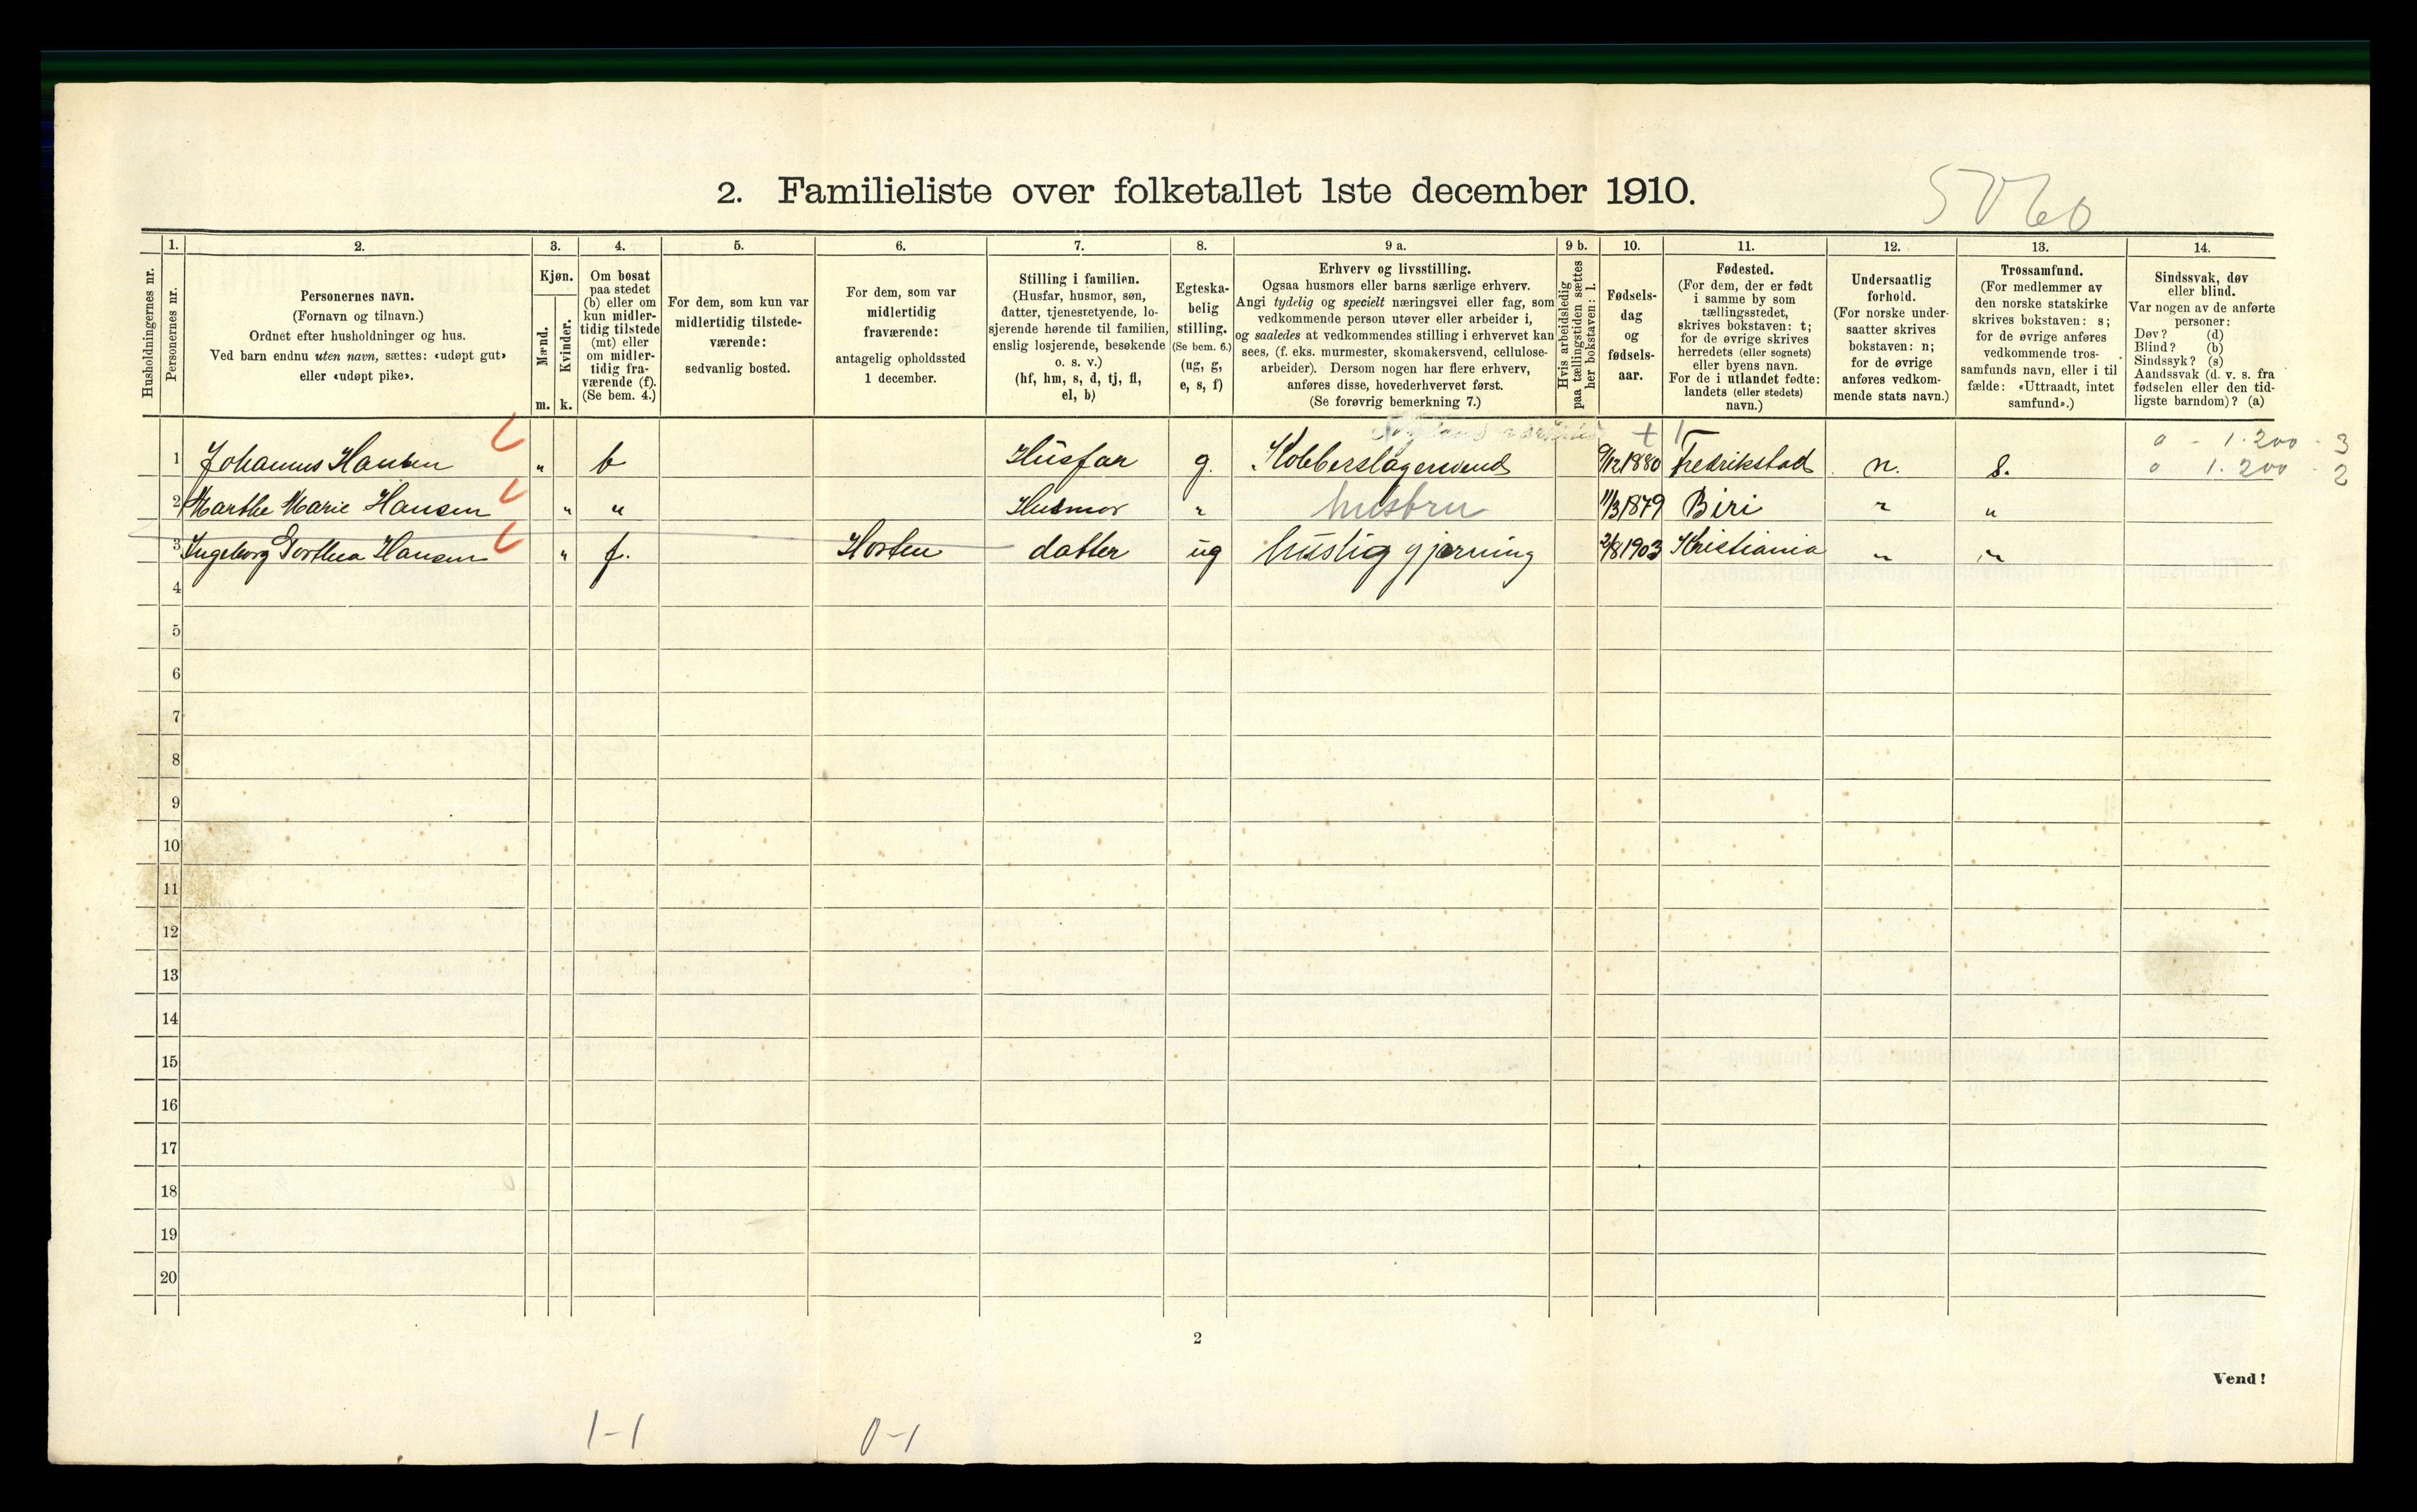 5060
2. Familieliste over folketallet 1ste december 1910.
1. 2. 3. 4. 5. 6. 7. 8. 9 a. 9 b. 10. 11. 12. 13. 14.
Husholdningernes nr.
Personernes nr.
Personernes navn.
(Fornavn og tilnavn.)
Ordnet efter husholdninger og hus.
Ved barn endnu uten navn, sættes: «udøpt gut»
eller «udøpt pike».
Kjøn.
Mænd.
Kvinder.
m. k.
Om bosat
paa stedet
(b) eller om
kun midler-
tidig tilstede
(mt) eller
om midler-
tidig fra-
værende (f).
(Se bem. 4.)
For dem, som kun var
midlertidig tilstede-
værende:
sedvanlig bosted.
For dem, som var
midlertidig
fraværende:
antagelig opholdssted
1 december.
Stilling i familien.
(Husfar, husmor, søn,
datter, tjenestetyende, lo-
sjerende hørende til familien,
enslig losjerende, besøkende
o. s. v.)
(hf, hm, s, d, tj, fl,
el, b)
Egteska-
belig
stilling.
(Se bem. 6.)
(ug, g,
e, s, f)
Erhverv og livsstilling.
Ogsaa husmors eller barns særlige erhverv.
Angi tydelig og specielt næringsvei eller fag, som
vedkommende person utøver eller arbeider i,
og saaledes at vedkommendes stilling i erhvervet kan
sees, (f. eks. murmester, skomakersvend, cellulose-
arbeider). Dersom nogen har flere erhverv,
anføres disse, hovederhvervet først.
(Se forøvrig bemerkning 7.)
Hvis arbeidsledig
paa tællingstiden sættes
her bokstaven: l.
Fødsels-
dag
og
fødsels-
aar.
Fødested.
(For dem, der er født
i samme by som
tællingsstedet,
skrives bokstaven: t;
for de øvrige skrives
herredets (eller sognets)
eller byens navn.
For de i utlandet fødte:
landets (eller stedets)
navn.)
Undersaatlig
forhold.
(For norske under-
saatter skrives
bokstaven: n;
for de øvrige
anføres vedkom-
mende stats navn.)
Trossamfund.
(For medlemmer av
den norske statskirke
skrives bokstaven: s;
for de øvrige anføres
vedkommende tros-
samfunds navn, eller i til
fælde: «Uttraadt, intet
samfund».)
Sindssvak, døv
eller blind.
Var nogen av de anførte
personer:
Døv? (d)
Blind? (b)
Sindssyk? (s)
Aandssvak (d. v. s. fra
fødselen eller den tid-
ligste barndom)? (a)
0 - 1.200 - 3
1 Johannes Hansen " b Husfar g. Kobberslagersvend 9/12 1880 Fredrikstad n. s. 0 1.200 - 2
2 Marthe Marie Hansen " " Husmor " husbru 11/3 1879 Biri " "
3 Ingeborg Dorthea Hansen " f. Horten datter ug huslig gjerning 2/8 1903 Kristiania " "
4
5
6
7
8
9
10
11
12
13
14
15
16
17
18
19
20
2
Vend!
1-1 0-1